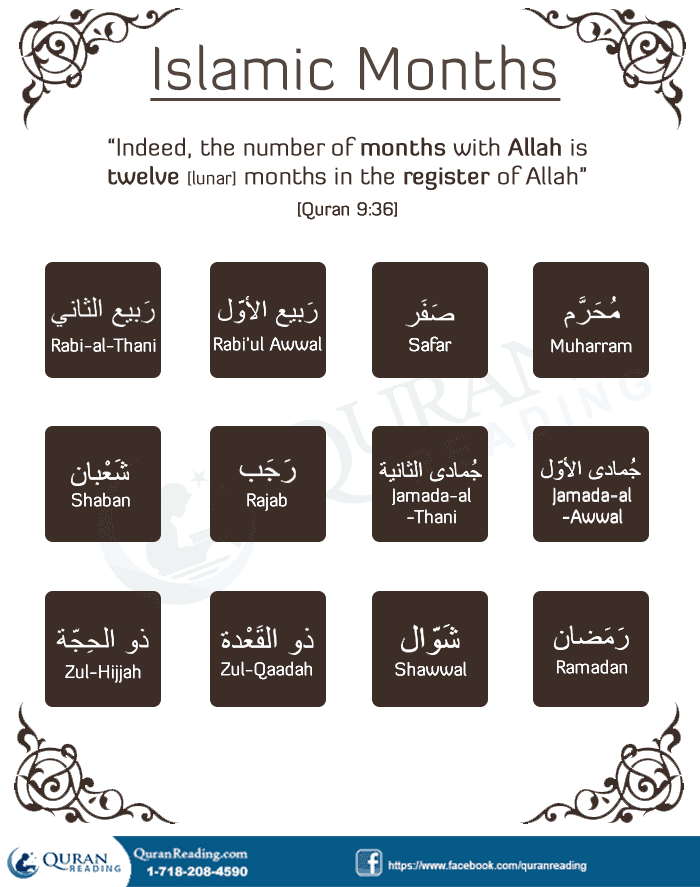 Islamic Months
“Indeed, the number of months with Allah is
twelve [lunar] months in the register of Allah”
[Quran 9:36]
مُحَرَّم
Muharram
صَفَر
Safar
رَبيع الأوّل
Rabi'ul Awwal
رَبيع الثاني
Rabi-al-Thani
جُمادى الأوّل
Jamada-al
-Awwal
جُمادى الثانية
Jamada-al
-Thani
رَجَب
Rajab
شَعْبان
Shaban
رَمَضان
Ramadan
شَوّال
Shawwal
ذو القَعْدة
Zul-Qaadah
ذو الحِجّة
Zul-Hijjah
QURAN
READING
QURAN
READING
QuranReading.com
1-718-208-4590
https://www.facebook.com/quranreading